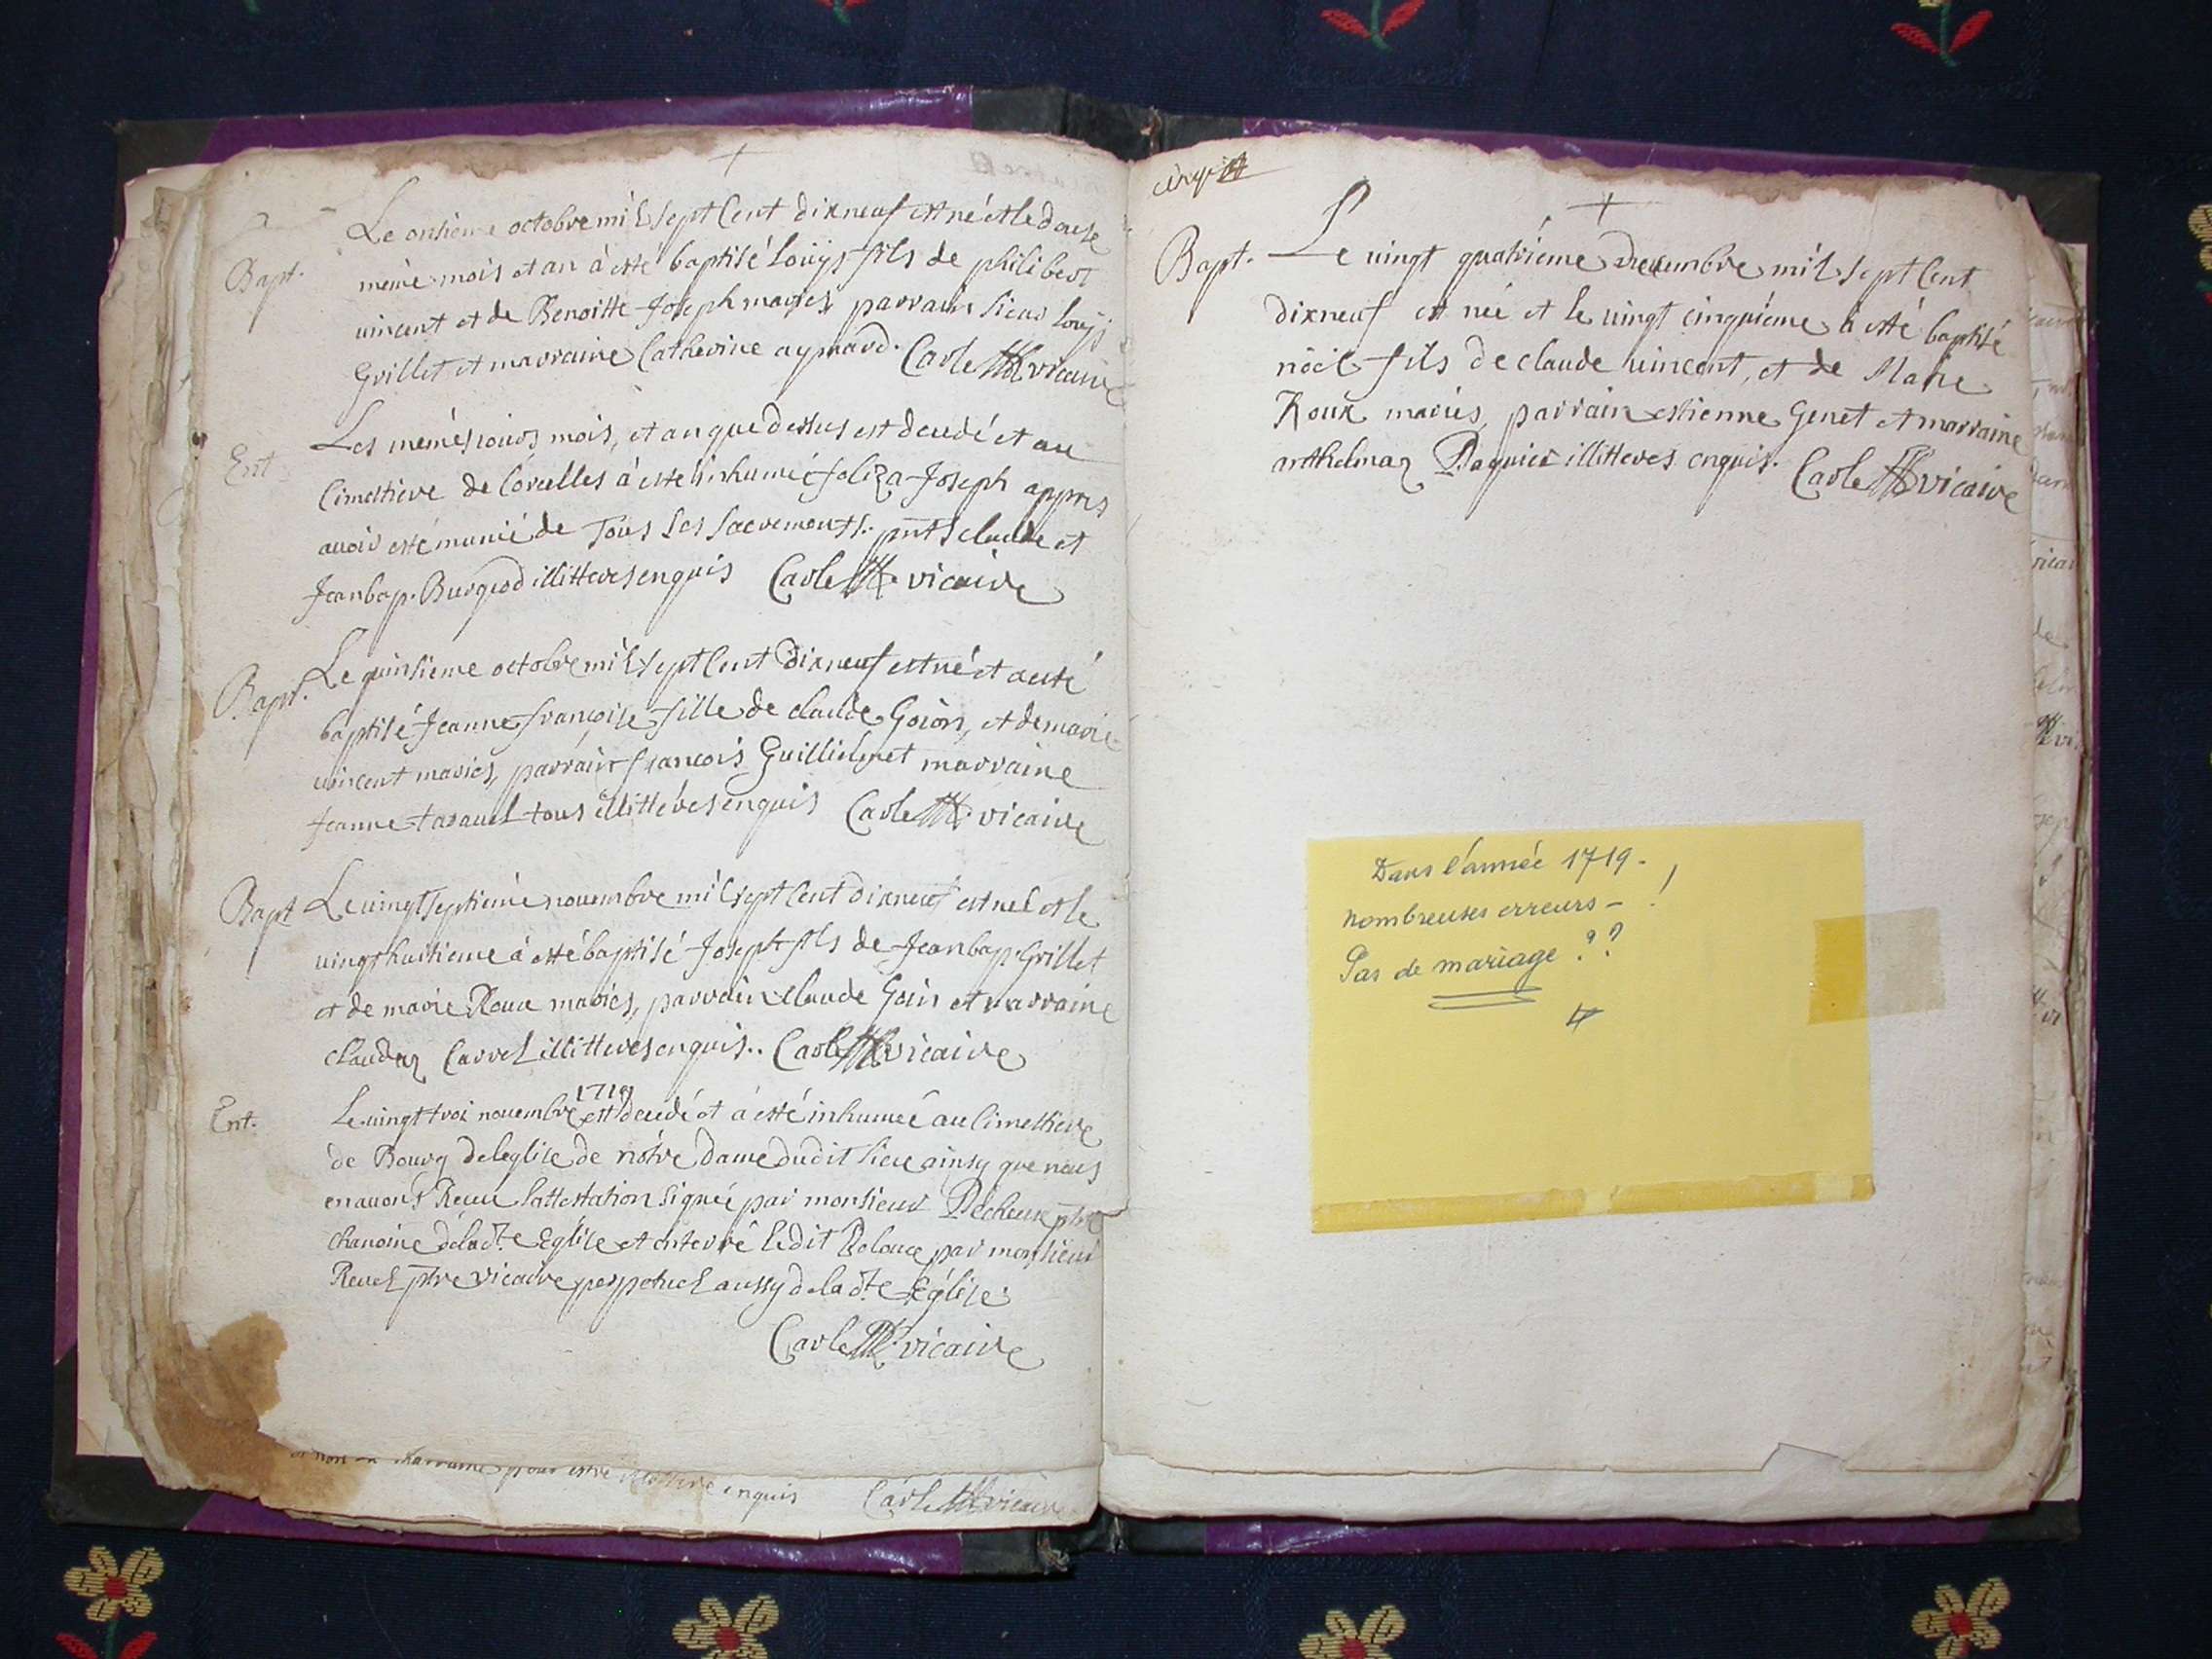 Bapt.
Le onsieme octobre mil sept Cent dixneuf est né et le douse
même mois et an à esté baptisé Loüys fils de philibert
uincent et de Benoitte Joseph mariés, parrain sieur Louys
Grillet et marraine Catherine aymard. Carle vicaire
Ent.
Les memes iours mois, et an que dessus est decedé et au
Cimestiere de Corcelles à esté inhumé Joseph appres
auoir esté munié de Tous les sacrements. pnts claude et
Jeanbap. Burgiod illitteres enquis Carle vicaire
Bapt.
Le quinsieme octobre mil sept Cent dixneuf est né et a esté
baptisé Jeanne françoise fille de claude Goion, et de marie
uincent mariés, parrain françois et marraine
Jeanne tous illitteres enquis Carle vicaire
Bapt
Le uingt septieme nouembre mil sept Cent dixneuf est né et le
uingt huitieme à esté baptisé Joseph fils de Jeanbap. Grillet
et de marie Roux mariés, parrain claude Goin et marraine
Carrel illitteres enquis.. Carle vicaire
Ent.
1719
Le uingt troi nouembre est decedé et à esté inhumé au Cimestiere
de Bourg de leglise de nôtre dame dudit lieu ainsy que nous
en auons Receu lattestation signée par monsieur ptre
chanoine de la dte Eglise et enterré ledit par monsieur
Reuel ptre vicaire perpetuel aussy de la dte Eglise.
Carle vicaire
marraine pour estre enquis Carle vicaire
Bapt.
Le uingt quatrieme decembre mil sept Cent
dixneuf est né et le uingt cinquieme à esté baptisé
nöel fils de claude uincent, et de Marie
Roux mariés, parrain estienne Genet et marraine
illitteres enquis. Carle vicaire
Dans l'année 1719 -
nombreuses erreurs - !
Pas de mariage ??